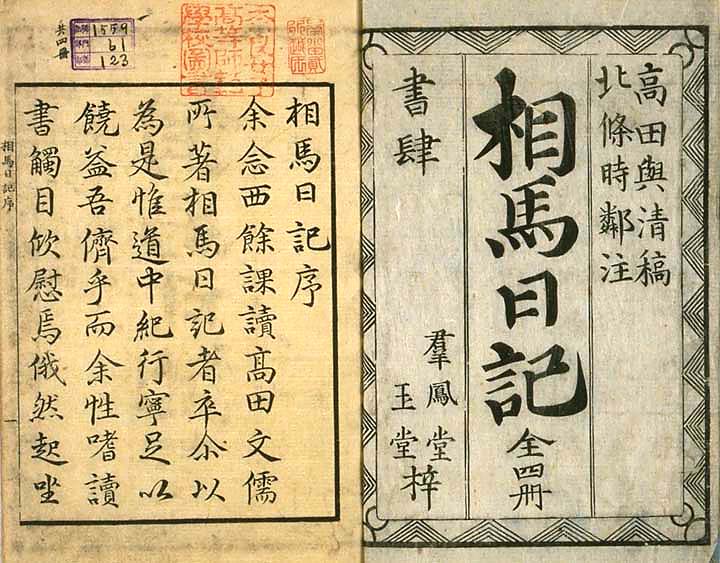 高田與清稿
北條時鄰注
相馬日記 全四册
書肆
羣鳳堂
玉堂
梓
相馬日記序
余念西餘課讀髙田文儒
所著相馬日記者卒尒以
為是惟道中紀行寧足以
饒益吾儕乎而余性嗜讀
書觸目欣慰焉俄然起坐
相馬日記序
一
共四冊
1559
61
123